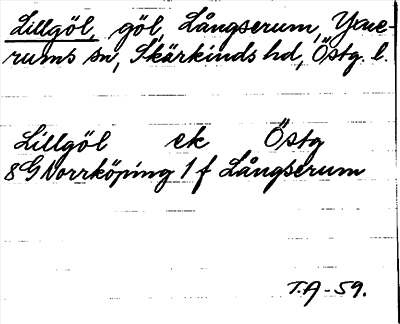 Lillgöl, göl, Långserum, Yxne-
rums sn, Skärkinds hd, Östg. l.
Lillgöl ek Östg
8G Norrköping 1 f Långserum
T.A-59.